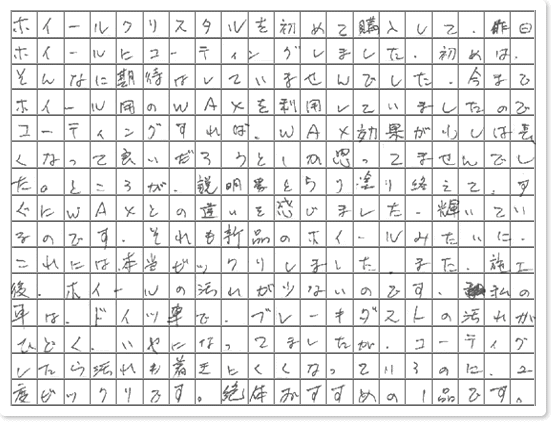 ホイールクリスタルを初めて購入して、昨日
ホイールにコーティングしました。初めは、
そんなに期待はしていませんでした。今まで
ホイール用のWAXを利用していましたので
コーティングすれば、WAX効果が少しは長
くなって良いだろうとしか思ってませんでし
た。ところが、説明書どうり塗り終えて、す
ぐにWAXとの違いを感じました。輝いてい
るのです。それも新品のホイールみたいに。
これには本当ビックリしました。また、施工
後、ホイールの汚れがツかないのです。私の
車は、ドイツ車で、ブレーキダストの汚れが
ひどく、いやになってましたが、コーティグ
したら汚れも着きにくくなっているのに、2
度ビックリです。絶体おすすめの1品です。